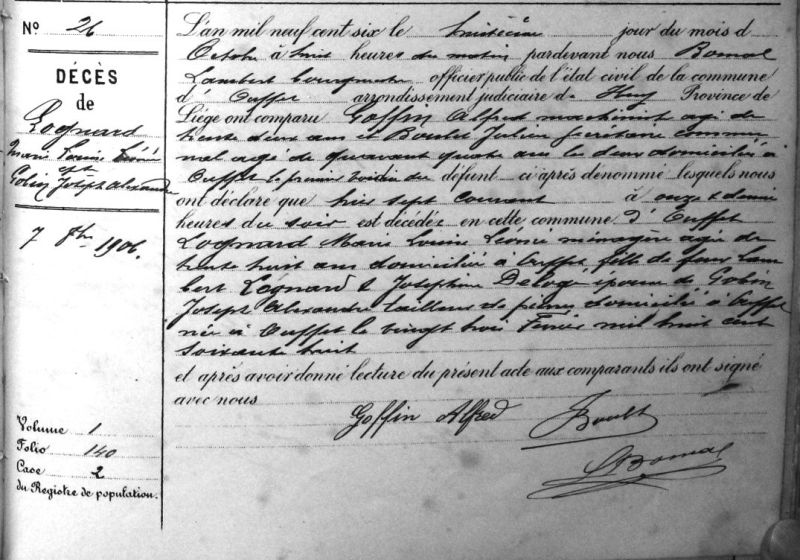 N° 26
DÉCÈS
de
Lognard
Marie Louise Léonie
épse
Gobin Joseph Alexandre
7 8bre 1906.
Volume 1
Folio 140
Case 2
du Registre de population.
L'an mil neuf cent six le huitième jour du mois d
Octobre à huit heures du matin pardevant nous Bomal
Lambert officier public de l'état civil de la commune
d' Ouffet arrondissement judiciaire d. Huy Province de
Liége ont comparu Goffin Alfred machiniste agé de
trente deux ans et Boulet Julien Secrétaire commu
nal agé de quarante quatre ans les deux domiciliés à
Ouffet le premier voisin du défunt ci après dénommé lesquels nous
ont déclaré que hier sept courant à onze & demie
heures du soir est décédée en cette commune d' Ouffet
Lognard Marie Louise Léonie ménagère agée de
trente huit ans domiciliée à Ouffet fille de feux Lam
bert Lognard & Josephine Deloge épouse de Gobin
Joseph Alexandre tailleur de pierres domicilié à Ouffet
née à Ouffet le vingt trois Février mil huit cent
soixante huit
et après avoir donné lecture du présent acte aux comparants ils ont signé
avec nous
Goffin Alfred JBoulet
LBomal